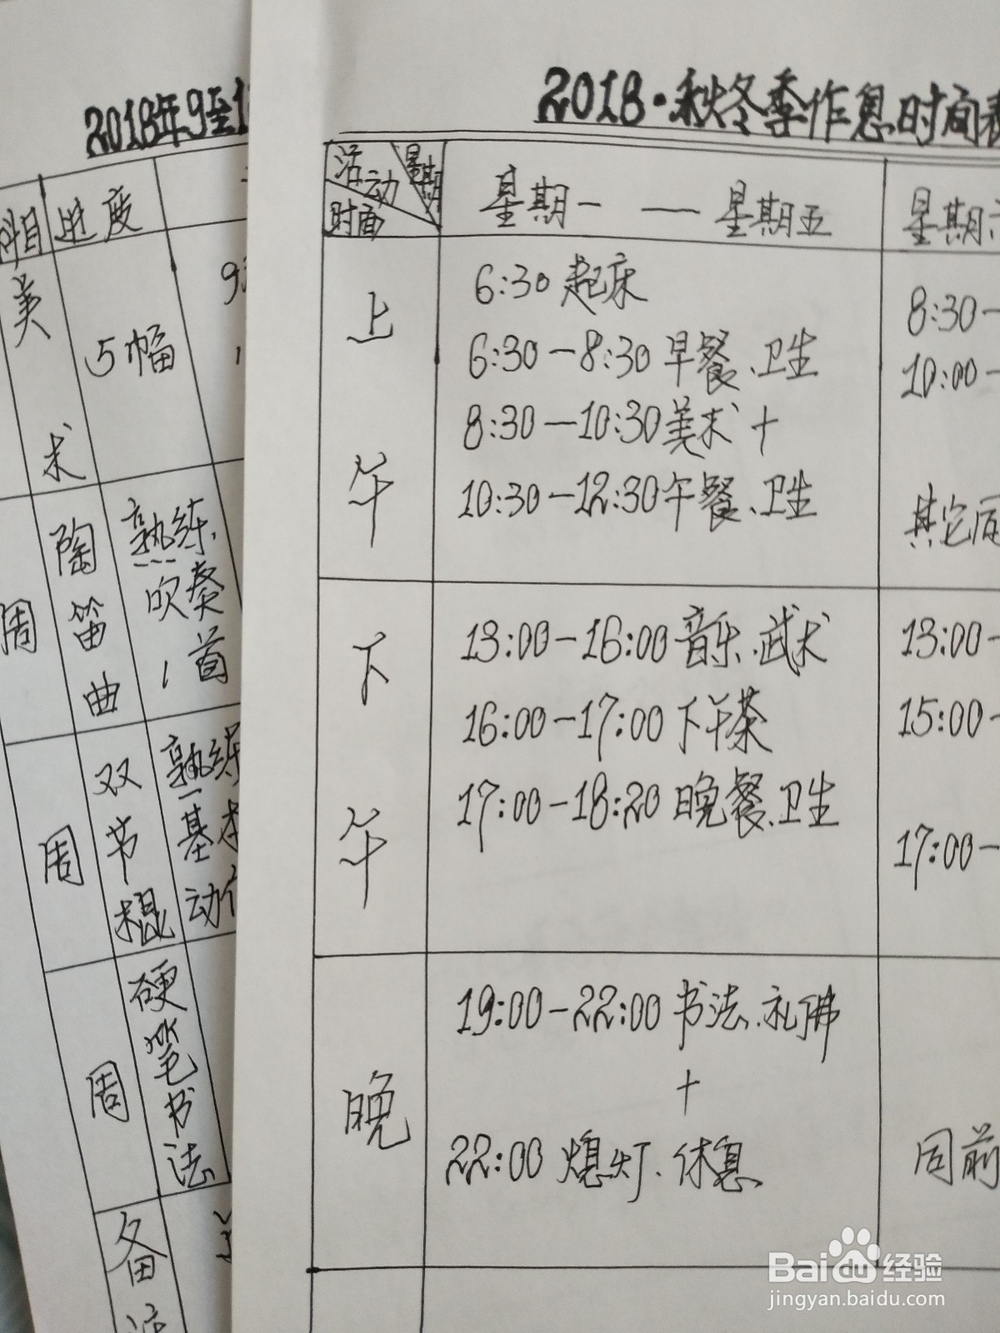 2018年9至1
科目 进度
美术 5幅
周 陶笛曲 熟练吹奏1首
周 双节棍 熟练基本动作
周 硬笔书法
备注
2018·秋冬季作息时间表
活动 星期
时间
星期一 — 星期五
星期六
上午
6:30 起床
6:30-8:30 早餐、卫生
8:30-10:30 美术 +
10:30-12:30 午餐、卫生
8:30-
10:00-
其它同
下午
13:00-16:00 音乐、武术
16:00-17:00 下午茶
17:00-18:20 晚餐、卫生
13:00-
15:00-
17:00-
晚
19:00-22:00 书法、礼佛
+
22:00 熄灯、休息
同前
Baidu 经验
jingyan.baidu.com